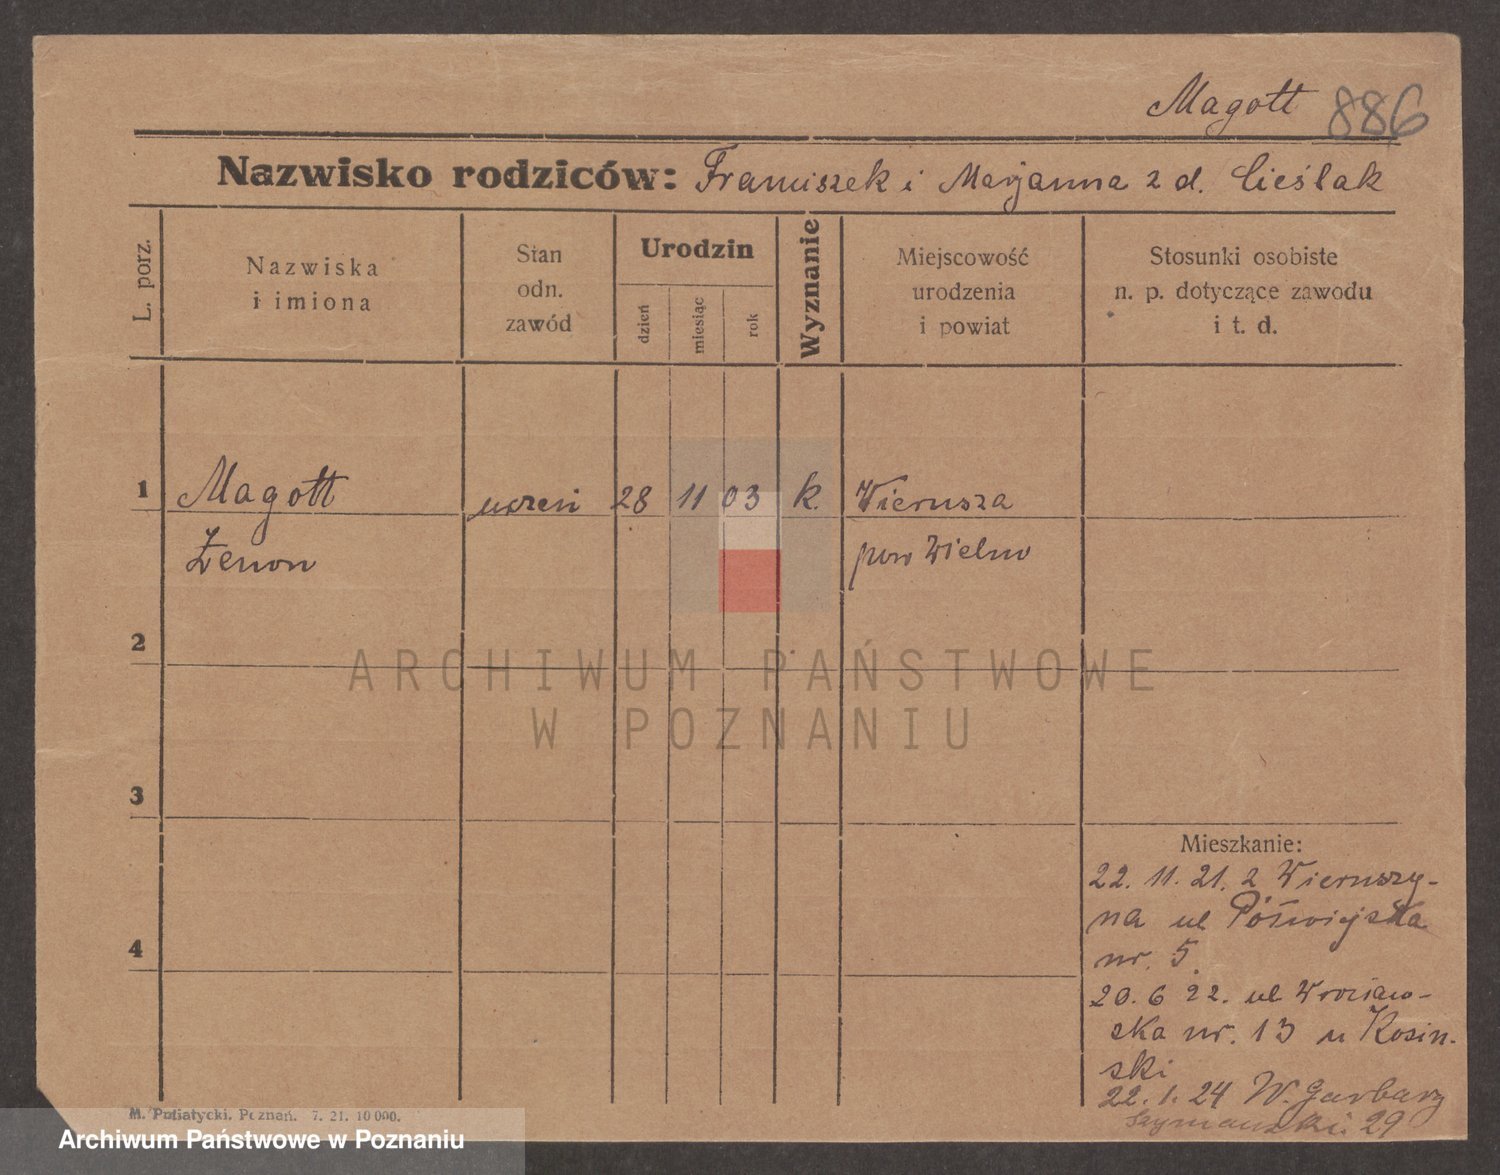 Magott 886
Nazwisko rodziców: Franciszek i Marjanna z d. Cieślak
L. porz.
Nazwiska
i imiona
Stan
odn.
zawód
Urodzin
dzień
miesiąc
rok
Wyznanie
Miejscowość
urodzenia
i powiat
Stosunki osobiste
n. p. dotyczące zawodu
i t. d.
1 Magott uczeń 28 11 03 k. Wierusza
Zenon pow Wielun
2
ARCHIWUM PAŃSTWOWE
W POZNANIU
3
Mieszkanie:
22. 11. 21. z Wieruszy-
na ul
nr. 5
4
20. 6 22. ul Wrocław-
ska nr. 13 u Kosin-
ski
22. 1. 24 W. Garbary
Szymański 29
M. Putiatycki, Poznań. 7. 21. 10 000.
Archiwum Państwowe w Poznaniu